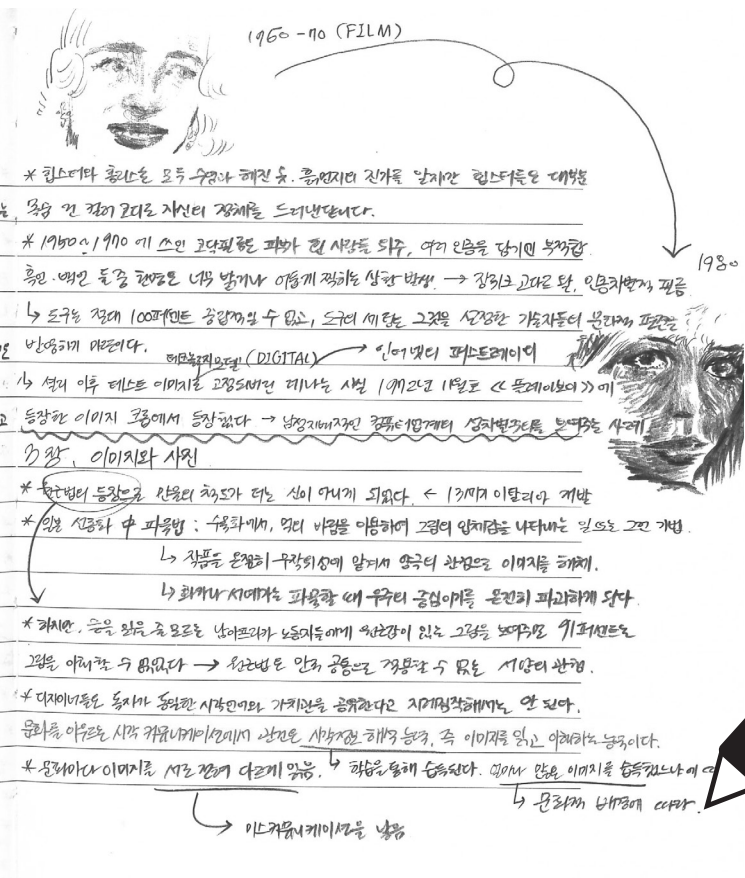 1960-70 (FILM)
* 힙스터와 홈리스는 모두 수염과 해진 옷, 흙먼지의 진가를 알지만 힙스터들은 대부분
목숨 건 컬러 코디로 자신의 정체를 드러낸답니다.
* 1950~1970 에 쓰인 코닥필름은 피부가 흰 사람들 위주, 여러 인종을 담기엔 부적합.
흑인·백인 둘 중 한명은 너무 밝거나 어둡게 찍히는 상황 발생. → 장 뤽 고다르 왈, 인종차별적 필름
1980
↳ 도구는 절대 100퍼센트 중립적일 수 없고, 도구의 세팅은 그것을 설정한 기술자들의 문화적 편견을
반영하기 마련이다.
(DIGITAL) → 인터넷의 퍼스트레이디
↳ 설리 이후 테스트 이미지로 고정되버린 레나는 사실 1972년 11월호 << 플레이보이 >> 에
등장한 이미지 크롭에서 등장했다 → 남성지배적인 컴퓨터업계의 성차별주의를 보여주는 사례
3장, 이미지와 사진
* 원근법의 등장으로 만물의 척도가 더는 신이 아니게 되었다. ← 13세기 이탈리아 개발
* 일본 선종화 中 파묵법 : 수묵화에서, 먹의 바림을 이용하여 그림의 입체감을 나타내는 일 또는 그런 기법.
↳ 작품을 온전히 무작위성에 맡겨서 양극의 관점으로 이미지를 해체.
↳ 화가나 서예가는 파묵할 때 우주의 중심이기를 온전히 파괴하게 된다.
* 하지만, 글을 읽을 줄 모르는 남아프리카 노동자들에게 원근감이 있는 그림을 보여주면 91퍼센트는
그림을 이해할 수 없었다 → 원근법은 만국 공통으로 적용할 수 없는 서양의 관점.
* 디자이너들은 독자가 동일한 시각언어와 가치관을 공유한다고 지레짐작해서는 안 된다.
문화를 아우르는 시각 커뮤니케이션에서 관건은 시각정보 해석 능력, 즉 이미지를 읽고 이해하는 능력이다.
* 문화마다 이미지를 서로 전혀 다르게 읽음. ↳ 학습을 통해 습득된다. 얼마나 많은 이미지를 습득했느냐에
↳ 문화적 배경에 따라.
↳ 미스커뮤니케이션을 낳음